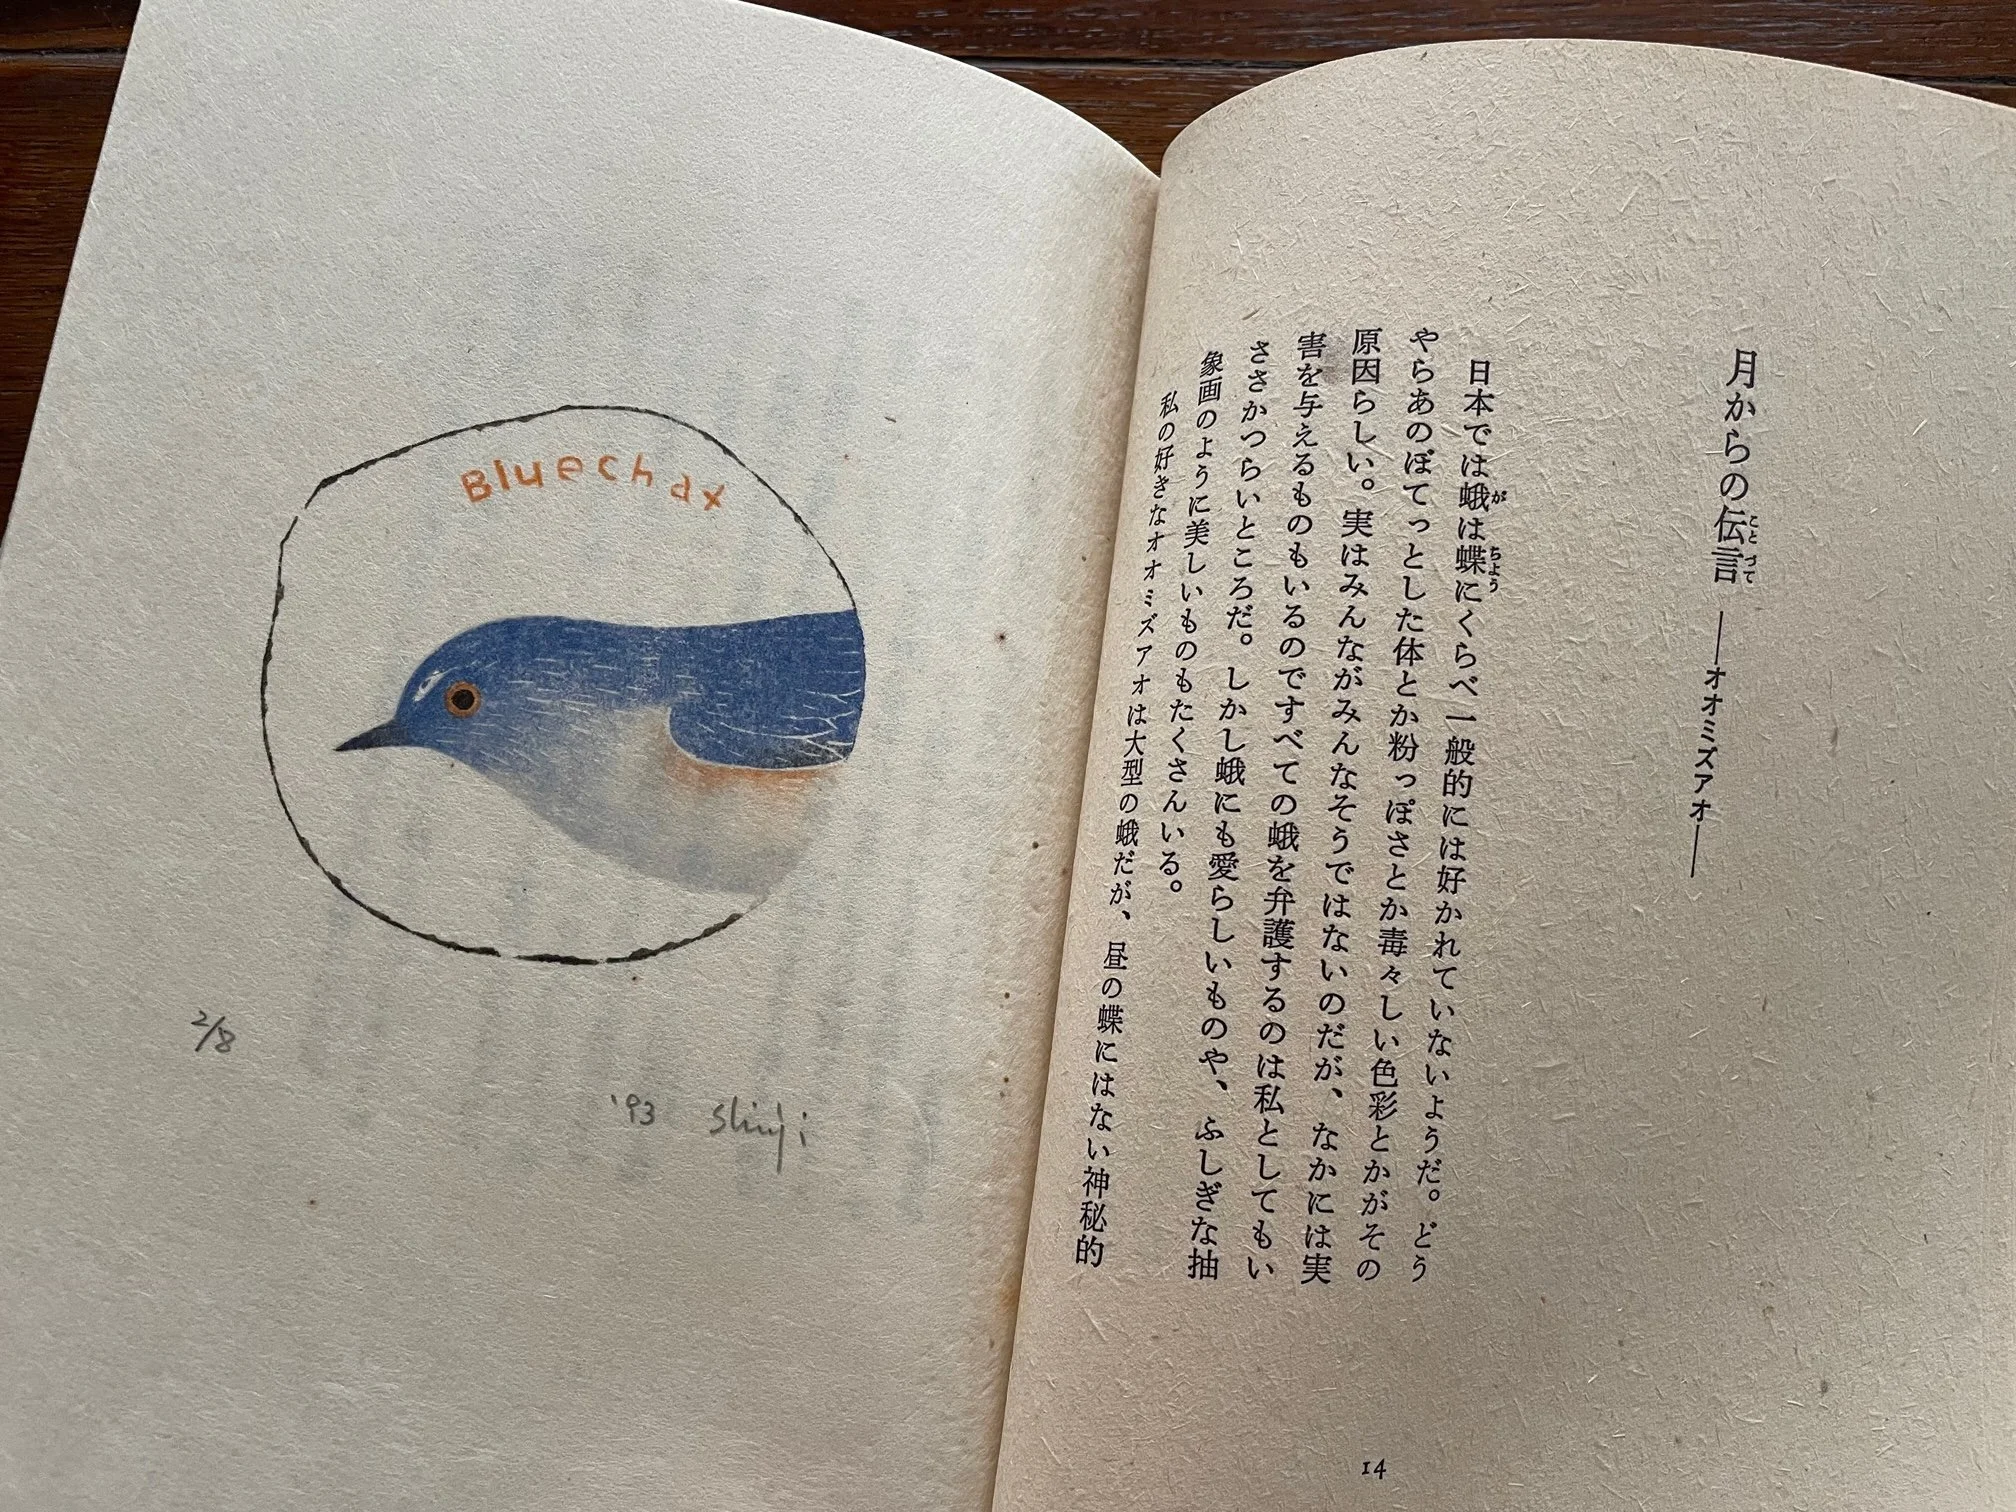 Bluechat
2/8
'93 Shinji
月からの伝言 ──オオミズアオ──
ことづて
日本では蛾は蝶にくらべ一般的には好かれていないようだ。どう
が ちょう
やらあのぼてっとした体とか粉っぽさとか毒々しい色彩とかがその
原因らしい。実はみんながみんなそうではないのだが、なかには実
害を与えるものもいるのですべての蛾を弁護するのは私としてもい
ささかつらいところだ。しかし蛾にも愛らしいものや、ふしぎな抽
象画のように美しいものもたくさんいる。
私の好きなオオミズアオは大型の蛾だが、昼の蝶にはない神秘的
14